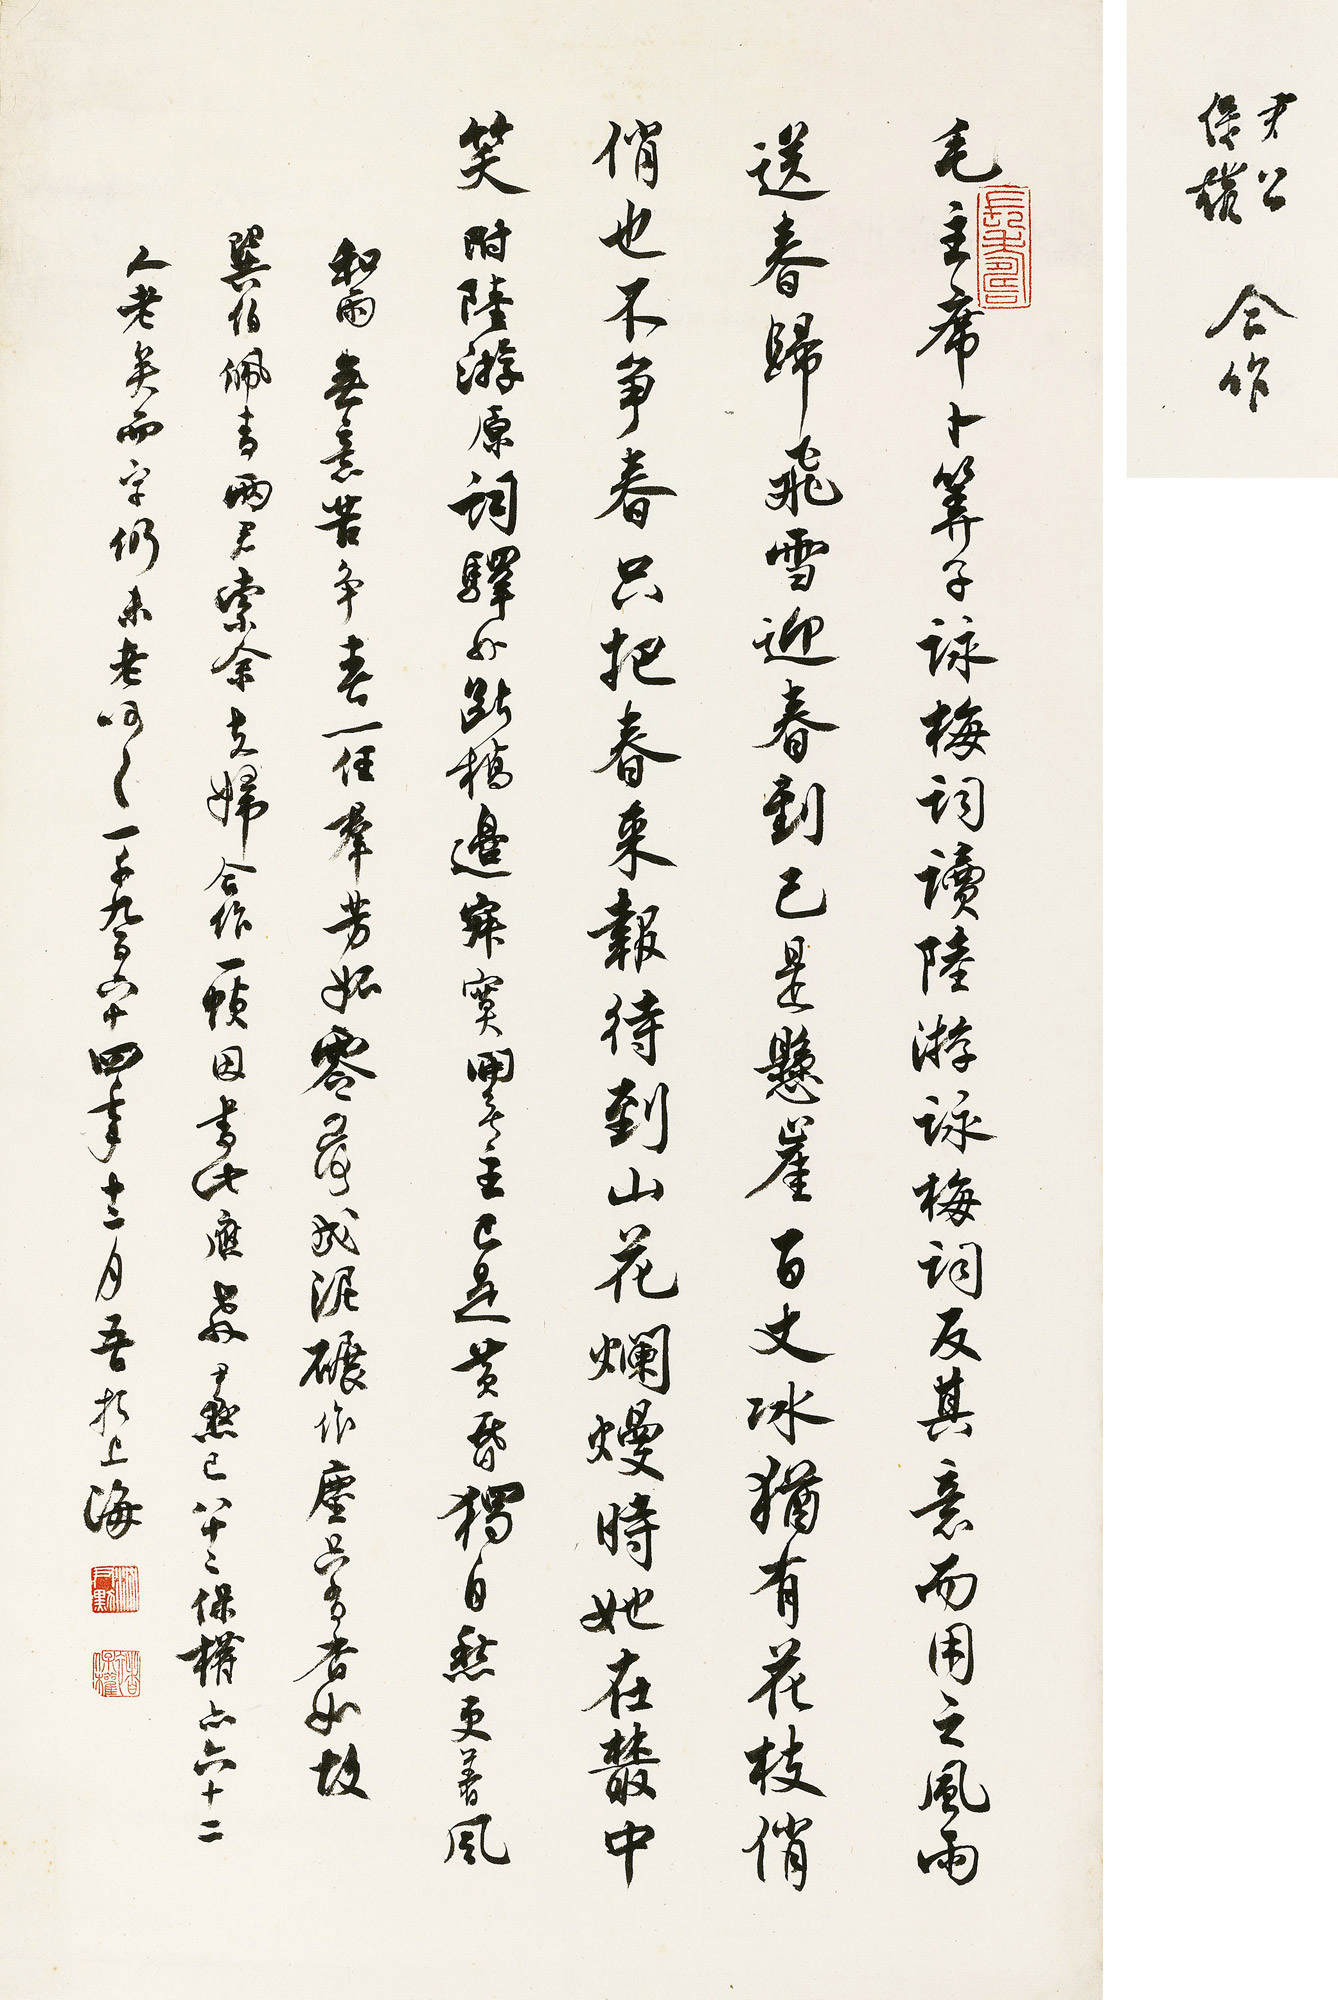 毛主席卜算子詠梅詞讀陸游詠梅詞反其意而用之風雨
送春歸飛雪迎春到已是懸崖百丈冰猶有花枝俏
俏也不争春只把春來報待到山花爛熳時她在叢中
笑附陸游原詞驛外斷橋邊寂寞開無主已是黄昏獨自愁更著風
和雨無意苦争春一任羣芳妬零落成泥碾作塵只有香如故
巽伯佩青兩君索余夫婦合作一幀因書此應教尹默已八十二保權亦六十二
人老矣而字仍未老呵〻一千九百六十四年十二月吾於上海
長生無極
沈尹默
保權
尹公
保權
合作